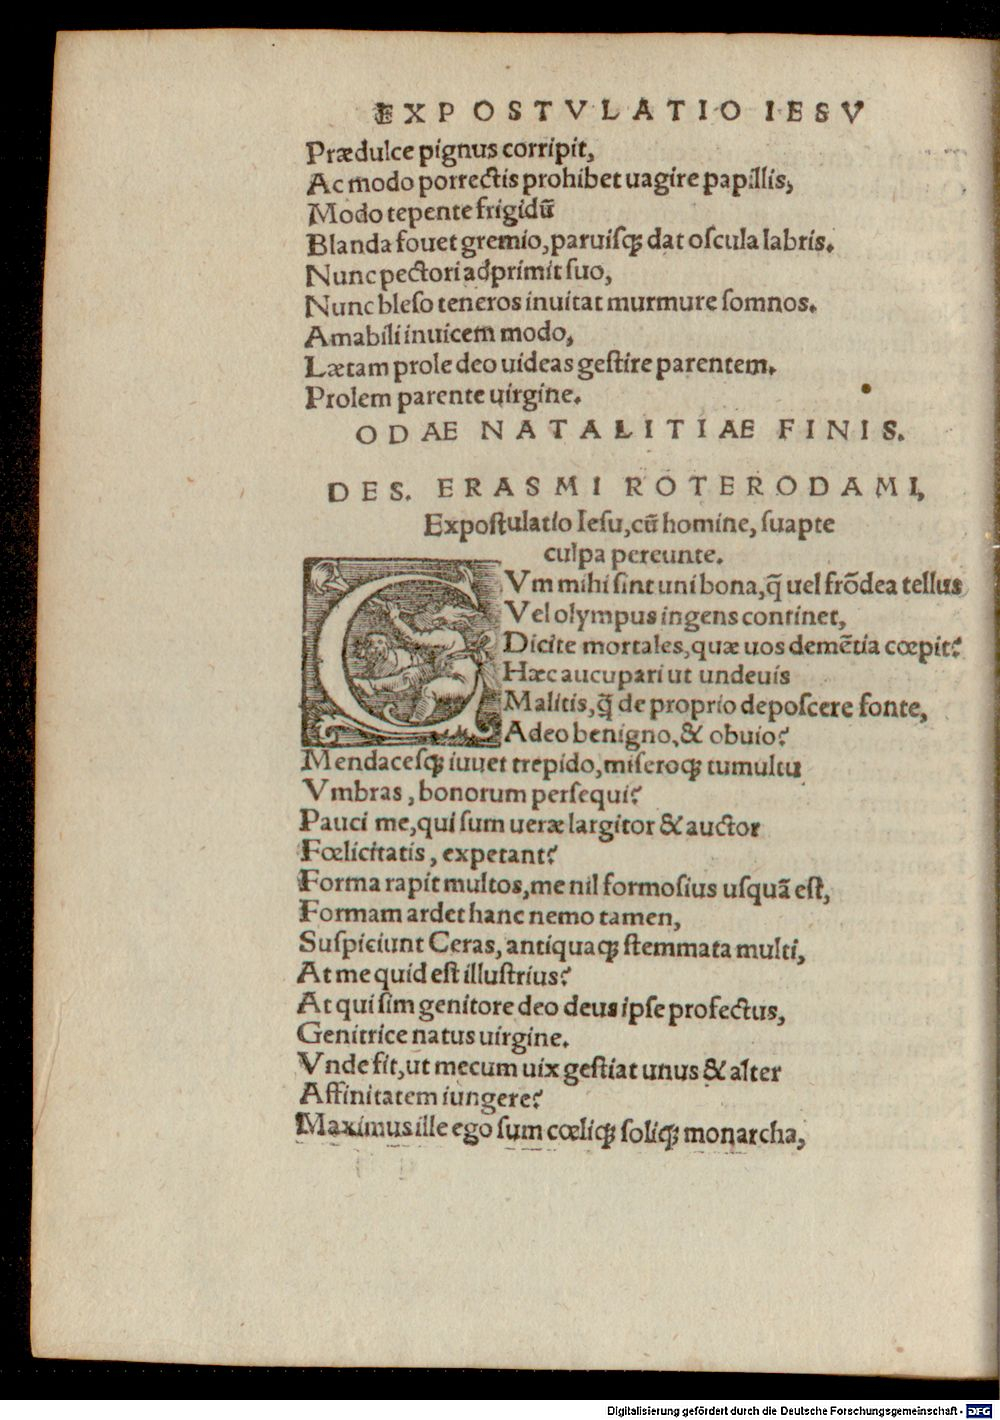 EXPOSTVLATIO IESV
Prædulce pignus corripit,
Ac modo porrectis prohibet uagire papillis,
Modo tepente frigidũ
Blanda fouet gremio, paruiſqꝫ dat oſcula labris.
Nunc pectori adprimit ſuo,
Nunc bleſo teneros inuitat murmure ſomnos.
Amabili inuicem modo,
Lætam prole deo uideas geſtire parentem.
Prolem parente uirgine.
ODAE NATALITIAE FINIS.
DES. ERASMI ROTERODAMI,
Expoſtulatio Ieſu, cũ homine, ſuapte
culpa pereunte.
CVm mihi ſint uni bona, q̃ uel frõdea tellus
Vel olympus ingens continet,
Dicite mortales, quæ uos demẽtia cœpit?
Hæc aucupari ut undeuis
Malitis, q̃ de proprio depoſcere fonte,
Adeo benigno, & obuio?
Mendaceſqꝫ iuuet trepido, miſeroqꝫ tumultu
Vmbras, bonorum perſequi?
Pauci me, qui ſum ueræ largitor & auctor
Fœlicitatis, expetant?
Forma rapit multos, me nil formoſius uſquã eſt,
Formam ardet hanc nemo tamen,
Suſpiciunt Ceras, antiquaqꝫ ſtemmata multi,
At me quid eſt illuſtrius?
At qui ſim genitore deo deus ipſe profectus,
Genitrice natus uirgine.
Vnde fit, ut mecum uix geſtiat unus & alter
Affinitatem iungere?
Maximus ille ego ſum cœliqꝫ ſoliqꝫ monarcha,
Digitalisierung gefördert durch die Deutsche Forschungsgemeinschaft - DFG